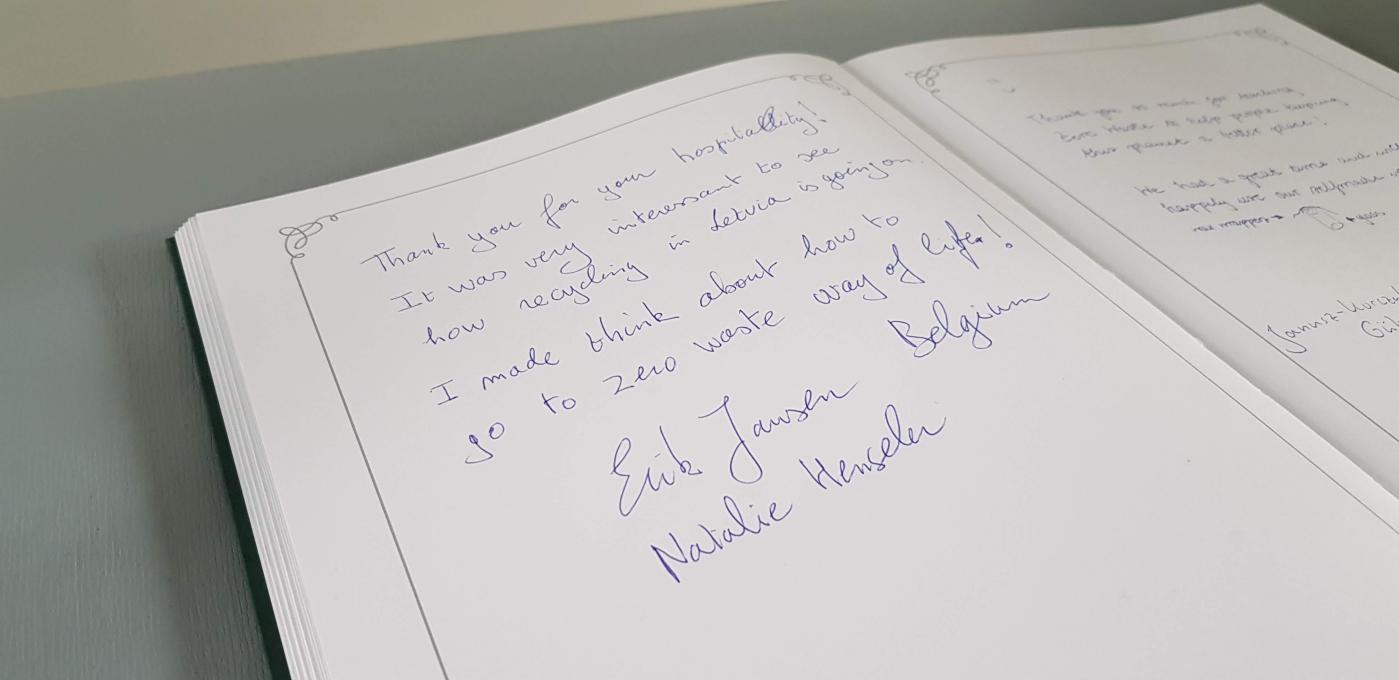 Thank you for your hospitallity!
It was very interessant to see
how recycling in Letvia is going on.
I made think about how to
go to zero waste way of life!
Belgium
Erik Jansen
Natalie Henseler
Thank you so much for teaching
zero waste to help people keeping
this planet a better place!
We had a great time and will
happily use our selfmade